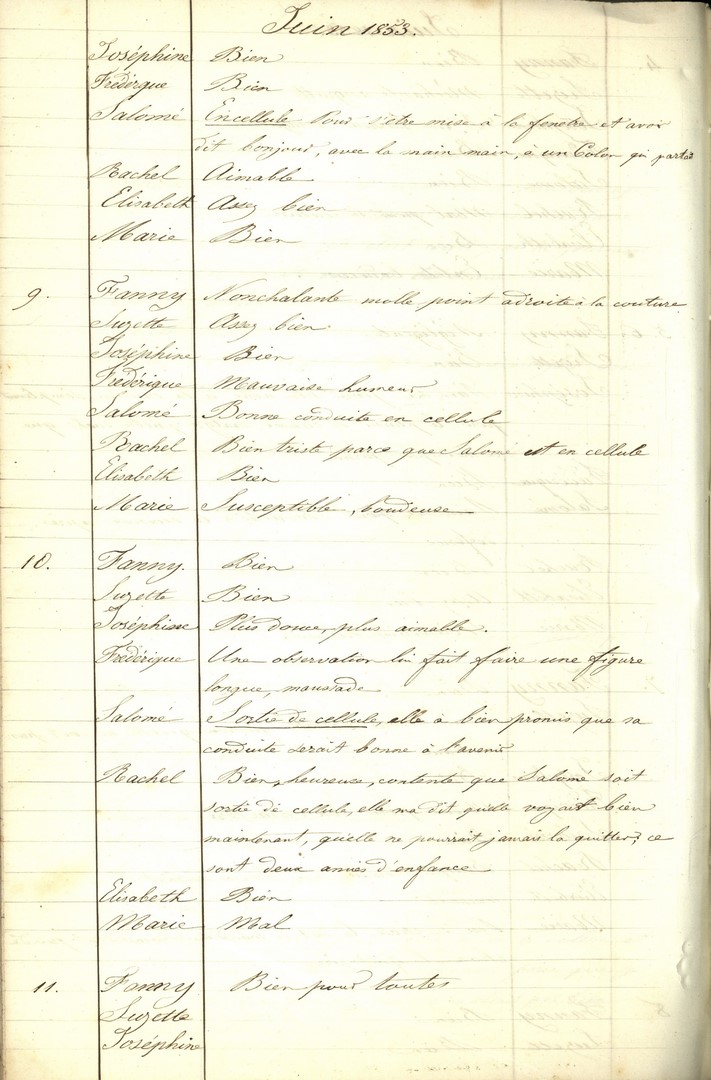 Juin 1853.
Joséphine Bien
Frédérque Bien
Salomé En cellule Pour s'être mise à la fenêtre et avoir
dit bonjour, avec la main main, à un Colon qui partait
Rachel Aimable
Elisabeth Assez bien
Marie Bien
9. Fanny Nonchalante molle point adroite à la couture
Suzette Assez bien
Joséphine Bien
Frédérique Mauvaise humeur
Salomé Bonne conduite en cellule
Rachel Bien triste parce que Salomé est en cellule
Elisabeth Bien
Marie Susceptible, boudeuse
10. Fanny. Bien
Suzette Bien
Joséphine Plus douce, plus aimable.
Frédérique Une observation lui fait faire une figure
longue, maussade
Salomé Sortie de cellule, elle à bien promis que sa
conduite serait bonne à l'avenir
Rachel Bien, heureuse, contente que Salomé soit
sortie de cellule, elle ma dit qu'elle voyait bien
maintenant, qu'elle ne pourrait jamais la quitter, ce
sont deux amies d'enfance
Elisabeth Bien
Marie Mal
11. Fanny Bien pour toutes
Suzette
Joséphine